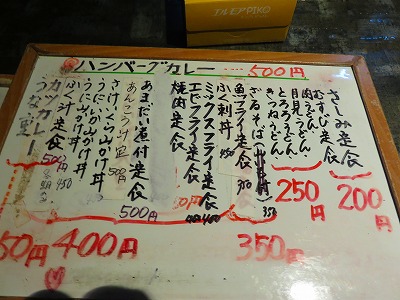 エルモアPIKO
ハンバーグカレー……500円
さしみ定食
むすび定食
200円
肉うどん、
月見うどん、
とろろうどん、
きつねうどん、
250円
ざるそば
350
魚フライ定食
350
ふぐ刺丼
450
ミックスフライ定食
エビフライ定食
焼肉定食
あまだい煮付定食
500円
あんこう
定 500円
さけいくら山かけ丼
うにいか山かけ丼
うに山かけ丼
ふぐ汁定食
450
カツカレー
500円
うな重
350円
400円
50円